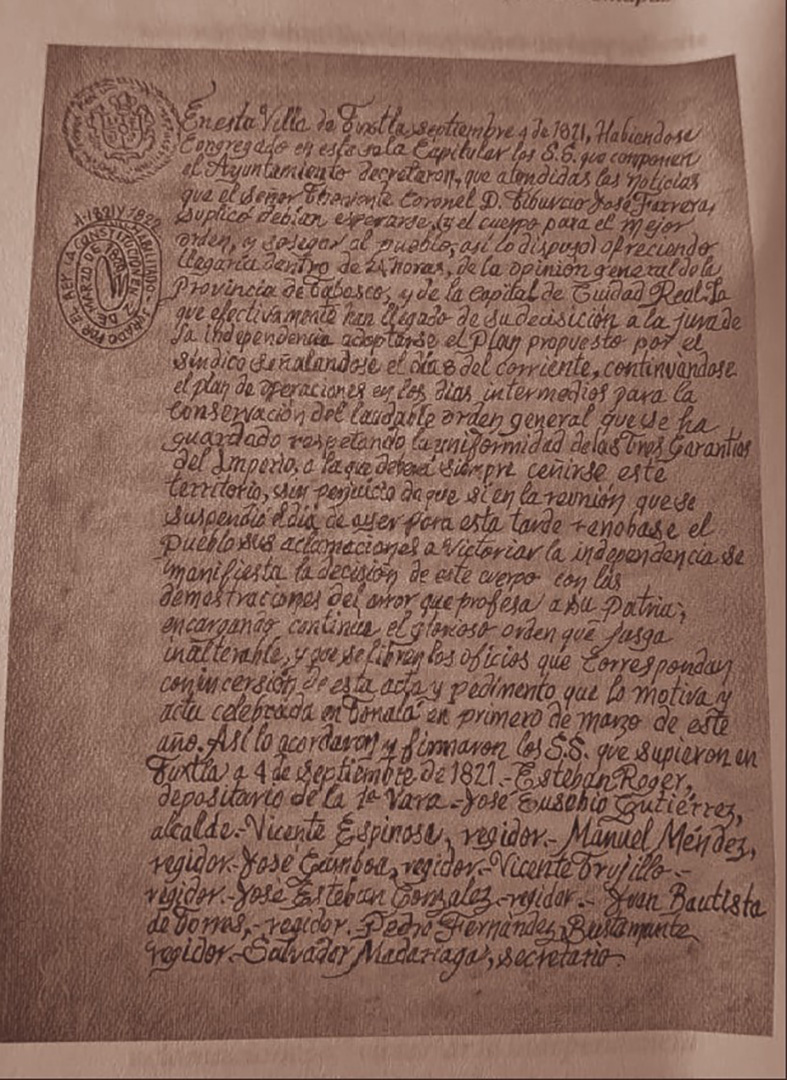 En esta Villa de Tuxtla, septiembre 4 de 1821, Habiendose
Congregado en esta sala Capitular los S.S. que componen
el Ayuntamiento decretaron, que atendidas las noticias
que el señor Theniente Coronel D. Tiburcio José Farrera,
suplicó debían esperarse, y el cuerpo para el mejor
orden, y sosegar al pueblo, así lo dispuso, ofreciendo
llegaría dentro de 24 horas, de la opinión general de la
Provincia de Tabasco, y de la Capital de Ciudad Real. La
que efectivamente han llegado de su decisión a la jura de
la independencia adoptarse el Plan propuesto por el
síndico señalandose el día 8 del corriente, continuándose
el plan de operaciones en los días intermedios para la
conservación del laudable orden general que se ha
guardado respetando la uniformidad de las Tres Garantías
del Imperio, a la que deberá siempre ceñirse este
territorio, sin perjuicio de que si en la reunión que se
suspendió el día de ayer para esta tarde renobase el
Pueblo sus aclamaciones a Victoriar la independencia se
manifiesta la decisión de este cuerpo con las
demostraciones del error que profesa a su Patria;
encargando continúe el glorioso orden que jusga
inalterable, y que se libren los oficios que correspondan
con incersión de esta acta y pedimento que lo motiva y
acta celebrada en Tonalá en primero de marzo de este
año. Así lo acordaron y firmaron los S.S. que supieron en
Tuxtla a 4 de septiembre de 1821.- Esteban Roger,
depositario de la 1ª Vara.- José Eusebio Gutiérrez,
alcalde.- Vicente Espinosa, regidor.- Manuel Méndez,
regidor.- José Gamboa, regidor.- Vicente Trujillo.-
regidor.- José Esteban Gonzalez.- regidor.- Juan Bautista
de Torres,- regidor. Pedro Fernández Bustamante
regidor.- Salvador Madariaga, secretario.-
A. 1821 Y 1822
HABILITADO - JURADO POR EL REY LA CONSTITUCION EN 9 DE MARZO DE 1820